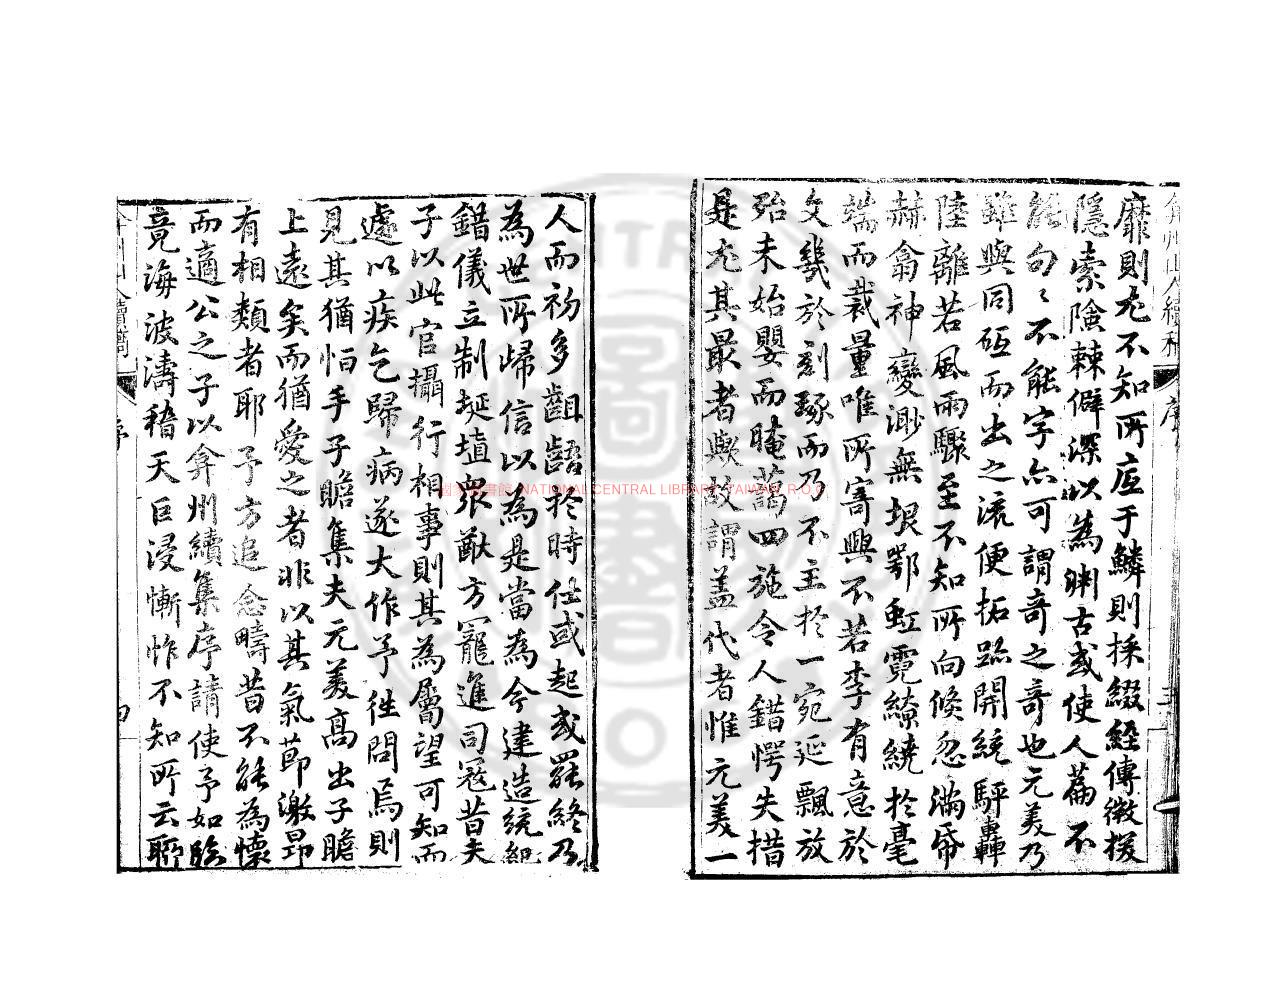 弇州山人續稿 序 三
靡則尤不知所底于鱗則採綴經傳徵援
隱索險棘僻深以為淵古或使人篇不
能句句不能字亦可謂奇之奇也元美乃
雖與同砥而出之流便拓跡開統駢轟
陸離若風雨驟至不知所向倏忽滿帋
赫翕神變渺無垠鄂虹霓繚繞於毫
端而裁量唯所寄興不若李有意於
文幾於刻琢而乃不主於一宛延飄放
殆未始嬰而晻藹四施令人錯愕失措
是尤其最者歟故謂蓋代者惟元美一
人而初多齟齬於時仕或起或罷終乃
為世所歸信以為是當為今建造統紀
錯儀立制埏埴衆猷方寵進司寇昔夫
子以此官攝行相事則其為屬望可知而
遽以疾乞歸病遂大作予往問焉則
見其猶怕手子瞻集夫元美高出子瞻
上遠矣而猶愛之者非以其氣節激昂
有相類者耶予方追念疇昔不能為懷
而適公之子以弇州續集序請使予如臨
竟海波濤稽天巨浸慚怍不知所云聊
弇州山人續稿 序 四
國家圖書館 NATIONAL CENTRAL LIBRARY, TAIWAN, R.O.C.